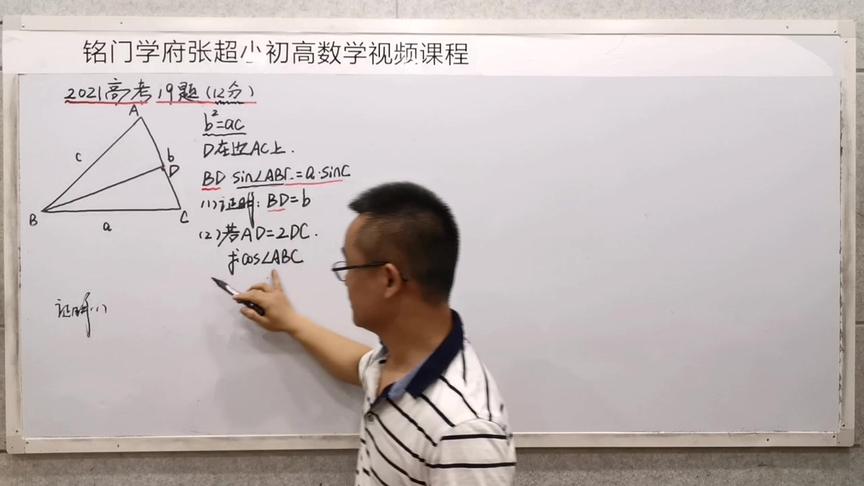 铭门学府张超小初高数学视频课程
2021高考19题(12分)
A
c
b
D
B
a
C
b²=ac
D在边AC上.
BD sin∠ABC=a·sinC
(1)证明:BD=b
(2)若AD=2DC.
求cos∠ABC
证明(1)